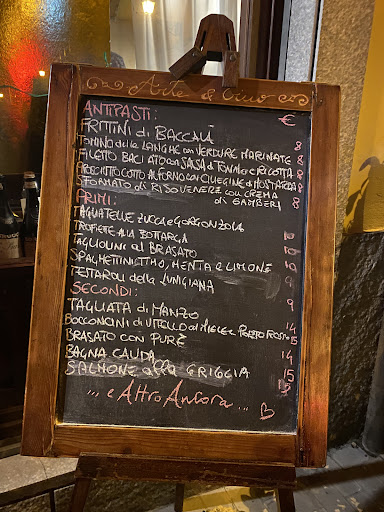 Arte & Vino
ANTIPASTI: €
FRITTINI di BACCALÀ 8
TOMINO delle LANGHE con VERDURE MARINATE 8
FILETTO BACIATO con SALSA di TONNO e RICOTTA 8
PROSCIUTTO COTTO AL FORNO CON CILIEGINE di MOSTARDA 8
SFORMATO di RISO VENERE CON CREMA di GAMBERI 8
PRIMI:
TAGLIATELLE ZUCCA e GORGONZOLA 10
TROFIETTE ALLA BOTTARGA 10
TAGLIOLINI al BRASATO 10
SPAGHETTINI, MENTA e LIMONE 9
TESTAROLI della LUNIGIANA 9
SECONDI:
TAGLIATA di MANZO 14
BOCCONCINI di VITELLO al MIELE e PORTO ROSSO 15
BRASATO CON PURÈ 14
BAGNA CAUDA 15
SALMONE alla GRIGLIA
... e Altro Ancora ...